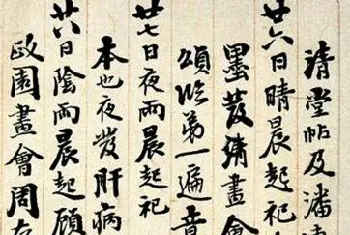 清堂帖及潘
廿六日晴晨起祀
墨 畫會
頌臨第一遍音
廿七日夜雨晨起祀
本也夜發肝病
廿八日陰雨晨起顧
政園畫會周